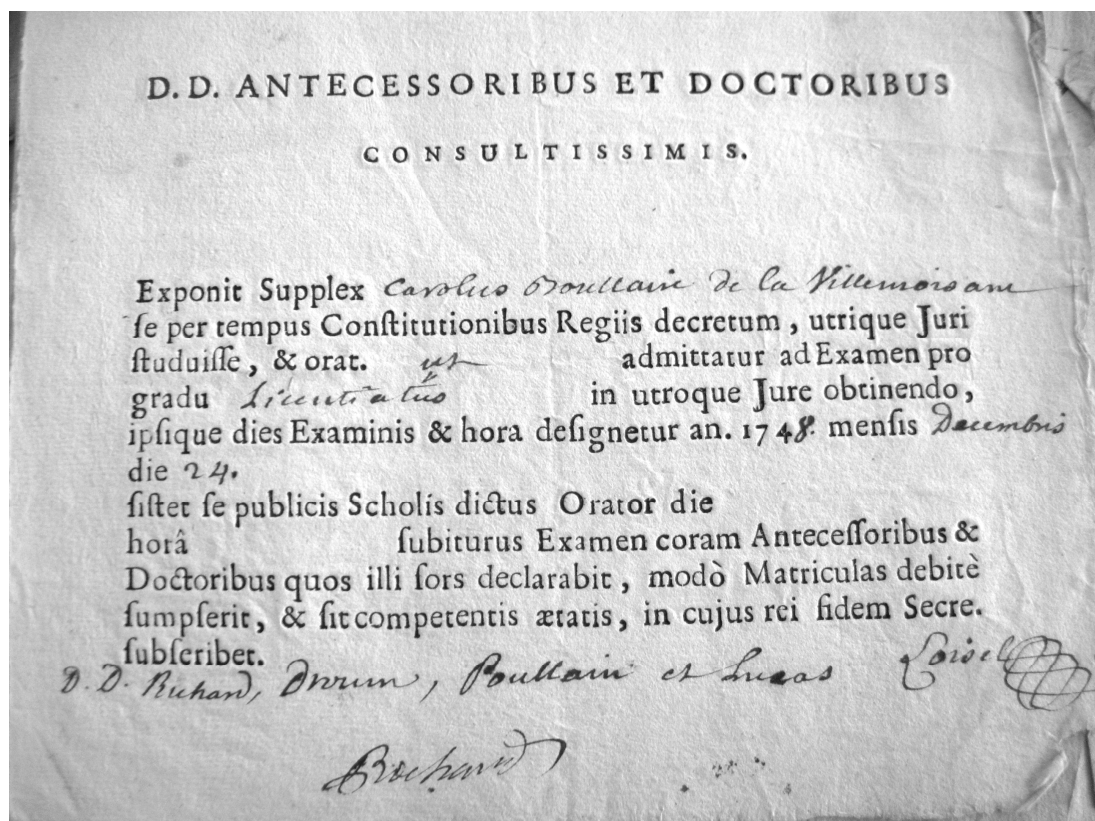 D. D. ANTECESSORIBUS ET DOCTORIBUS
CONSULTISSIMIS.
Exponit Supplex Carolus Boullain de la Villemoisane
ſe per tempus Conſtitutionibus Regiis decretum, utrique Juri
ſtuduiſſe, & orat. ut admittatur ad Examen pro
gradu Licentiatûs in utroque Jure obtinendo,
ipſique dies Examinis & hora deſignetur an. 1748. menſis Decembris
die 24.
ſiſtet ſe publicis Scholis dictus Orator die
horâ ſubiturus Examen coram Anteceſſoribus &
Doctoribus quos illi ſors declarabit, modò Matriculas debitè
ſumpſerit, & ſit competentis ætatis, in cujus rei fidem Secre.
ſubſcribet.
D. D. Richard, Poullain et Lucas Loisel